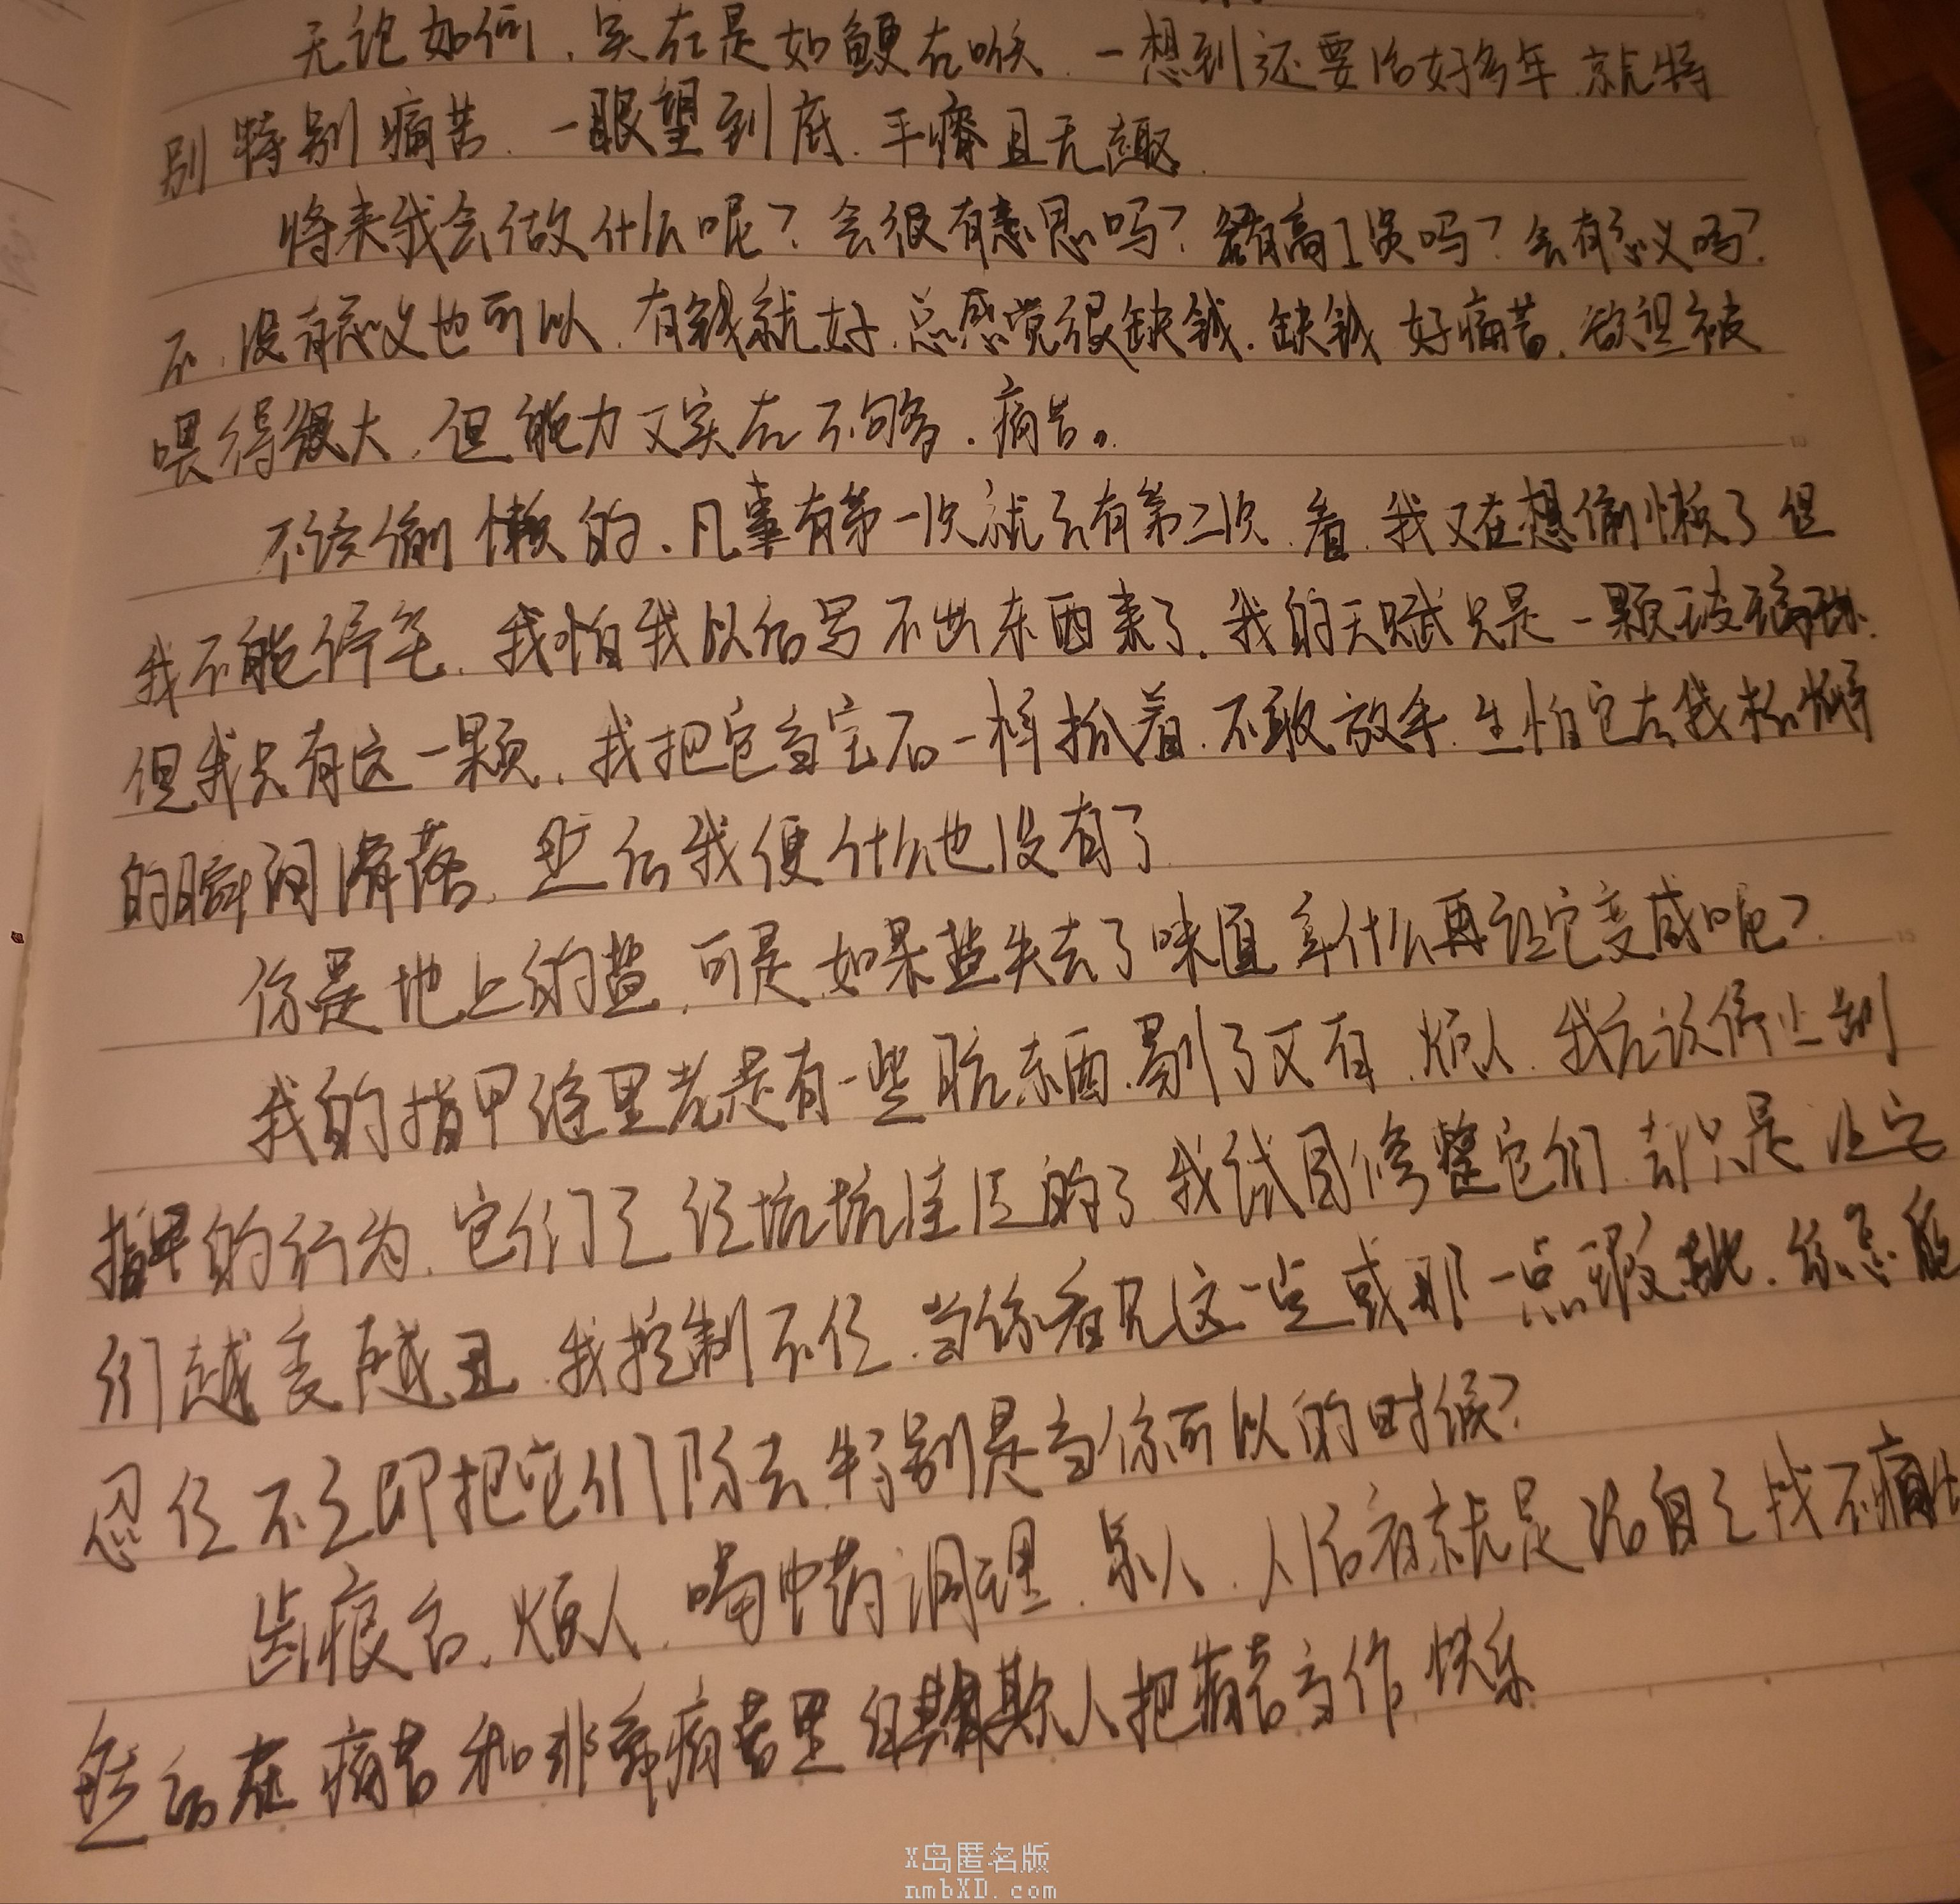 无论如何，实在是如鲠在喉，一想到还要活好多年，就特
别特别痛苦，一眼望到底，平瘠且无趣。
将来我会做什么呢？会很有意思吗？会有高工资吗？会有意义吗？
不，没有意义也可以，有钱就好，总感觉很缺钱，缺钱好痛苦，欲望被
喂得很大，但能力又实在不够，痛苦。
不该偷懒的，凡事有第一次就会有第二次，看，我又在想偷懒了，但
我不能停笔，我怕我以后写不出东西来了，我的天赋只是一颗玻璃球，
但我只有这一颗，我把它当宝石一样抓着，不敢放手，生怕它在我松懈
的瞬间滑落，然后我便什么也没有了
你是地上的盐，可是，如果盐失去了味道，拿什么再让它变咸呢？
我的指甲缝里老是有一些脏东西，剔了又有，烦人，我应该停止剐
指甲的行为，它们已经坑坑洼洼的了，我试图修整它们，却只是让它
们越变越丑，我控制不住，当你看见这一点或那一点瑕疵，你怎能
忍住不立即把它们除去，特别是当你可以的时候？
齿痕舌，烦人，喝中药调理，烦人，人活着就是给自己找不痛快
然后在痛苦和非常痛苦里自欺欺人把痛苦当作快乐
X岛匿名版
nmbXD.com